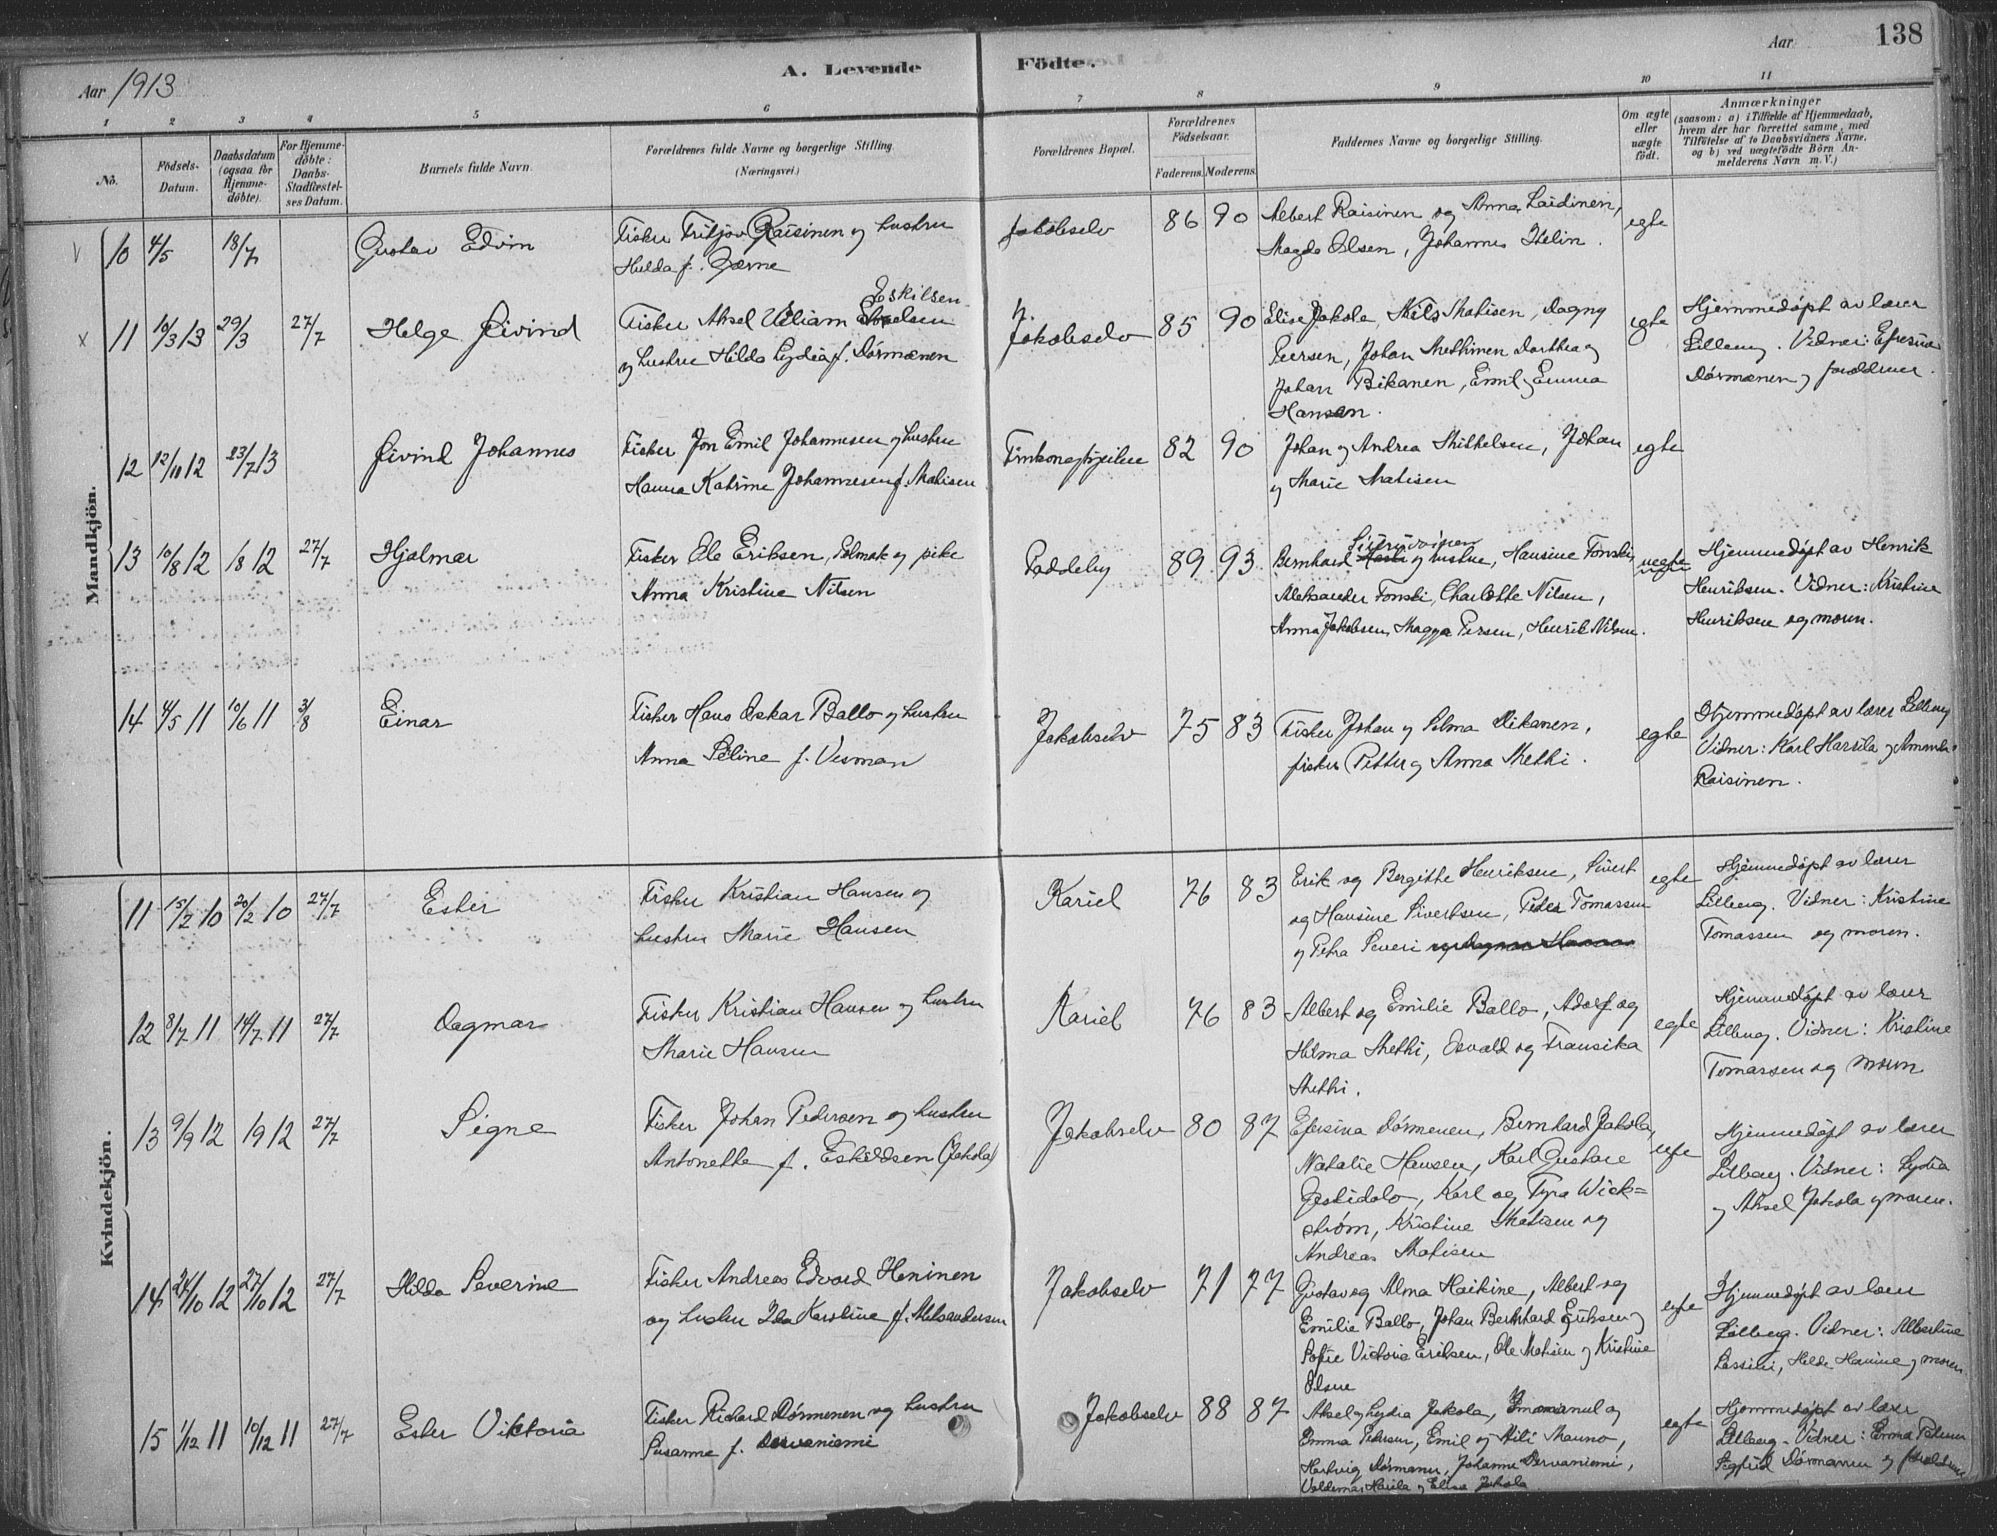 138
Aar 1913
A. Levende Födte.
Aar
1 2 3 4 5 6 7 8 9 10 11
No.
Födsels-Datum.
Daabsdatum (ogsaa for Hjemme-döbte).
For Hjemme-döbte: Daabs-Stadfæstel-ses Datum.
Barnets fulde Navn.
Forældrenes fulde Navne og borgerlige Stilling. (Næringsvei.)
Forældrenes Bopæl.
Forældrenes Födselsaar.
Faderens. Moderens.
Faddernes Navne og borgerlige Stilling.
Om ægte eller uægte födt.
Anmærkninger (saasom: a) i Tilfælde af Hjemmedaab, hvem der har forrettet samme, med Tilföielse af to Daabsvidners Navne, og b) ved uægtefödte Börn An-melderens Navn m. V.)
Mandkjön.
10 4/5 18/7 Gustav Edvin
Fisker Fritjov Raisinen og hustru
Hulda f. Gærne
Jakobselv 86 90
Albert Raisinen og Anna Laidinen,
Magda Olsen, Johannes Thelin.
egte
11 10/3 13 29/3 27/7 Helge Eivind
Eskilsen
Fisker Aksel Viliam
og hustru Hilda Lydia f. Dørmænen
N. Jakobselv 85 90
Elise Jakola, Nils Matisen, Dagny
Persen, Johan Methinen Dorthea og
Johan Bikanen, Emil og Emma
Hansen.
egte
Hjemmedøpt av lærer
Lilleng. Vidner: Efresina
Dørmænen og forældrene.
12 12/10 12 23/7 13 Eivind Johannes
Fisker Jon Emil Johannesen og hustru
Hanna Katrine Johannesen f. Matisen
82 90
Johan og Andrea Mikkelsen, Johan
og Marie Matisen
egte
13 10/8 12 /8 12 27/7 Hjalmar
Fisker Ole Eriksen, Polmak og pike
Anna Kristine Nilsen
Paddeby 89 93
Bernhard og hustru, Hansine Tonski,
Aleksander Tonski, Charlotte Nilsen,
Anna Jakobsen, Magga Persen, Henrik Nilsen.
uegte
Hjemmedøpt av Henrik
Henriksen. Vidner: Kristine
Henriksen og moren.
14 4/5 11 10/6 11 3/8 Einar
Fisker Hans Oskar Ballo og hustru
Anna Seline f. Vesman
Jakobselv 75 83
Fisker Johan og Selma Dikanen,
fisker Petter og Anna Methi.
egte
Hjemmedøpt av lærer Lilleng
Vidner: Karl Harila og
Raisinen.
Kvindekjön.
11 15/2 10 20/2 10 27/7 Ester
Fisker Kristian Hansen og
hustru Marie Hansen
Kariel 76 83
Erik og Bergitte Henriksen, Sivert
og Hansine Sivertsen, Peder Tomassen
og Petra Severi
egte
Hjemmedøpt av lærer
Lilleng. Vidner: Kristine
Tomassen og moren.
12 8/7 11 14/7 11 27/7 Dagmar
Fisker Kristian Hansen og hustru
Marie Hansen
Kariel 76 83
Albert og Emilie Ballo, Adolf og
Hilma Methi, Osvald og Fransika
Methi.
egte
Hjemmedøpt av lærer
Lilleng. Vidner: Kristine
Tomassen og moren
13 9/9 12 19 12 27/7 Signe
Fisker Johan Pedersen og hustru
Antonette f. Eskildsen (Jakola)
Jakobselv 80 87
Efresina Dørmenen, Bernhard Jakola,
Natalie Hansen, Karl Gustave
Karl og Tyra Wick=
strøm, Kristine Matisen og
Andreas Matisen
egte
Hjemmedøpt av lærer
Lilleng. Vidner: Lydia
og Aksel Jakola og moren.
14 24/10 12 27/10 12 27/7 Hilda Severine
Fisker Andreas Edvard Heninen
og hustru Ida Karoline f. Aleksandersen
Jakobselv 71 77
Gustav og Alma Haikine, Albert og
Emilie Ballo, Johan Bernhard Eriksen og
Sofie Victoria Eriksen, Ole Matisen og Kristine
Olsen
egte
Hjemmedøpt av lærer
Lilleng. Vidner: Albertine
Lassini, Hilda Hanine og moren
15 1/12 11 10/12 11 27/7 Ester Viktoria
Fisker Richard Dørmenen og hustru
Susanna f. Dervaniemi
Jakobselv 88 87
Aksel og Lydia Jakola, Emanuel og
Emma Pedersen, Emil og Mili Mauno,
Hartvig Dørmænen, Johanne Dervaniemi,
Valdemar Harila og Elisa Jakola
egte
Hjemmedøpt av lærer
Lilleng. Vidner: Emma Pedersen
Sigfrid Dørmænen og forældrene